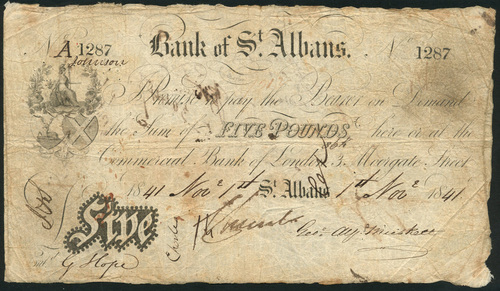 N A 1287 Bank of St Albans. No 1287
Johnson
I Promise to pay the Bearer on Demand
the Sum of FIVE POUNDS here or at the
Commercial Bank of London, 3, Moorgate Street
1841 Novr 1st St Albans 1st Novr 1841
Five
Geo. Alfd. Muskett
G Hope